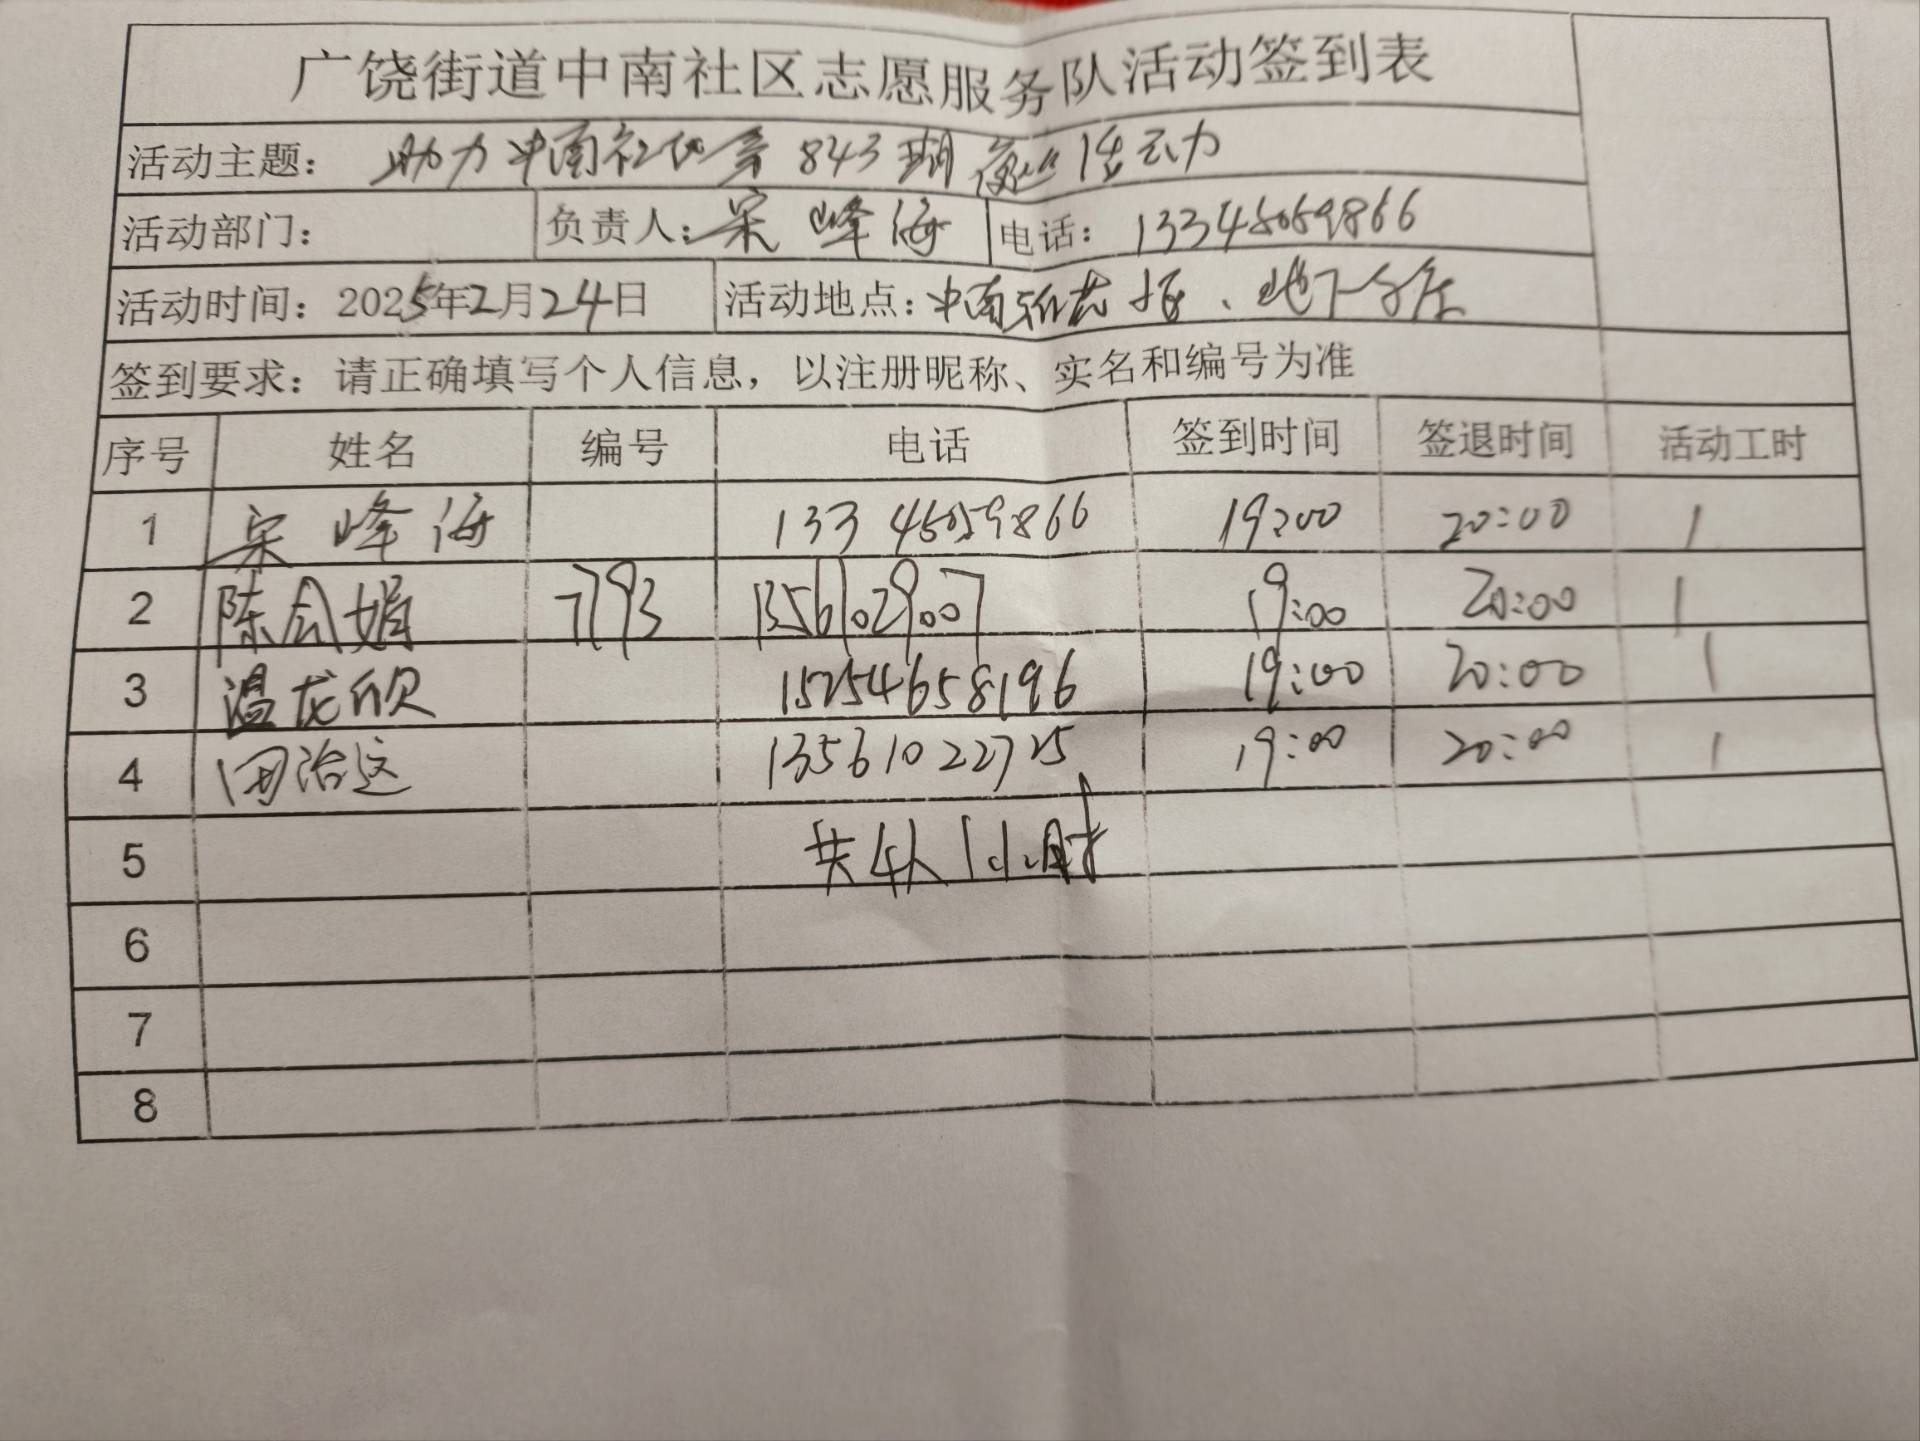 广饶街道中南社区志愿服务队活动签到表
活动主题： 助力中南社区第843期夜巡活动
活动部门： 负责人：宋峰海 电话：13345059866
活动时间：2025年2月24日 活动地点：中南 、地下
签到要求：请正确填写个人信息，以注册昵称、实名和编号为准
序号 姓名 编号 电话 签到时间 签退时间 活动工时
1 宋峰海 13345059866 19:00 20:00 1
2 陈会娟 7793 13561029007 19:00 20:00 1
3 温龙欣 15254658196 19:00 20:00 1
4 13561022725 19:00 20:00 1
5 共4人1小时
6
7
8